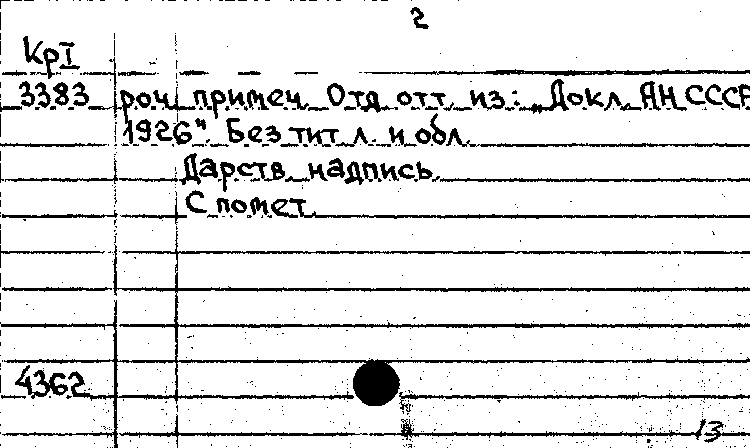 2
КрI
3383 роч. примеч. Отд. отт. из: „Докл. АН СССР
1926". Без тит. л. и обл.
Дарств. надпись.
С помет.
4362
13